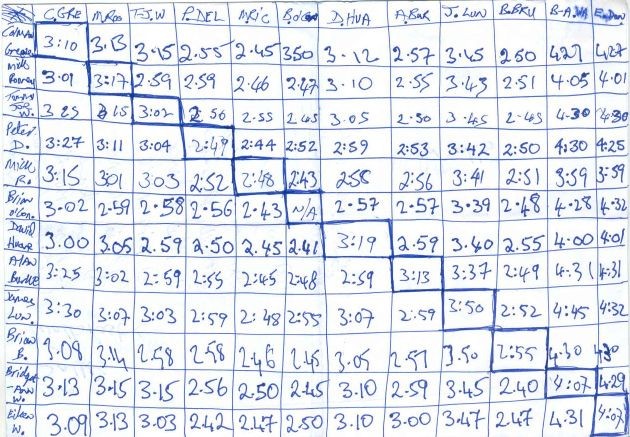 C.GRE M.Ros T.J.W P.DEL M.RIC B.O'Con D.HUA A.BUR J.LUN B.BRU B-A.Wa E.Don
Colman 3:10 3.13 3.15 2:55 2.45 350 3.12 2.57 3.45 250 427 4.27
Mick 3.01 3:17 2.59 2.59 2.46 2.47 3.10 2.55 3.43 2.51 4.05 4.01
W. 3 25 3:02 2.56 2.55 2.45 3.05 2.50 3.45 2.45 4.30 4.30
Peter D. 3:27 3:11 3:04 2:49 2:44 2:52 2:59 2:53 3:42 2:50 4:30 4:25
Mick R. 3:15 3:01 3:03 2:52 2:48 2:43 2:58 2:56 3:41 2:51 3:59 3:59
Brian O'Con. 3.02 2.59 2.58 2.56 2.43 N/A 2.57 2.57 3.39 2.48 4.28 4:32
David 3.00 3.05 2.59 2.50 2.45 2.41 3:19 2.59 3.40 2.55 4.00 4:01
Alan 3:25 3:02 2:59 2:55 2:45 2:48 2:59 3:13 3:37 2:49 4:31 4:31
James Lun. 3:30 3:07 3:03 2:59 2:48 2:55 3:07 2:59 3:50 2:52 4:45 4:32
Brian B. 3.08 3.14 2.58 2.58 2.46 2.45 3.05 2.57 3.50 2:55 4.30 4.30
Bridget-Ann W. 3.13 3.15 3.15 2.56 2.50 2.45 3.10 2.59 3.45 2.40 4:07 4.29
Eileen W. 3.09 3.13 3.03 2.42 2.47 2.50 3.10 3.00 3.47 2.47 4.31 4:07